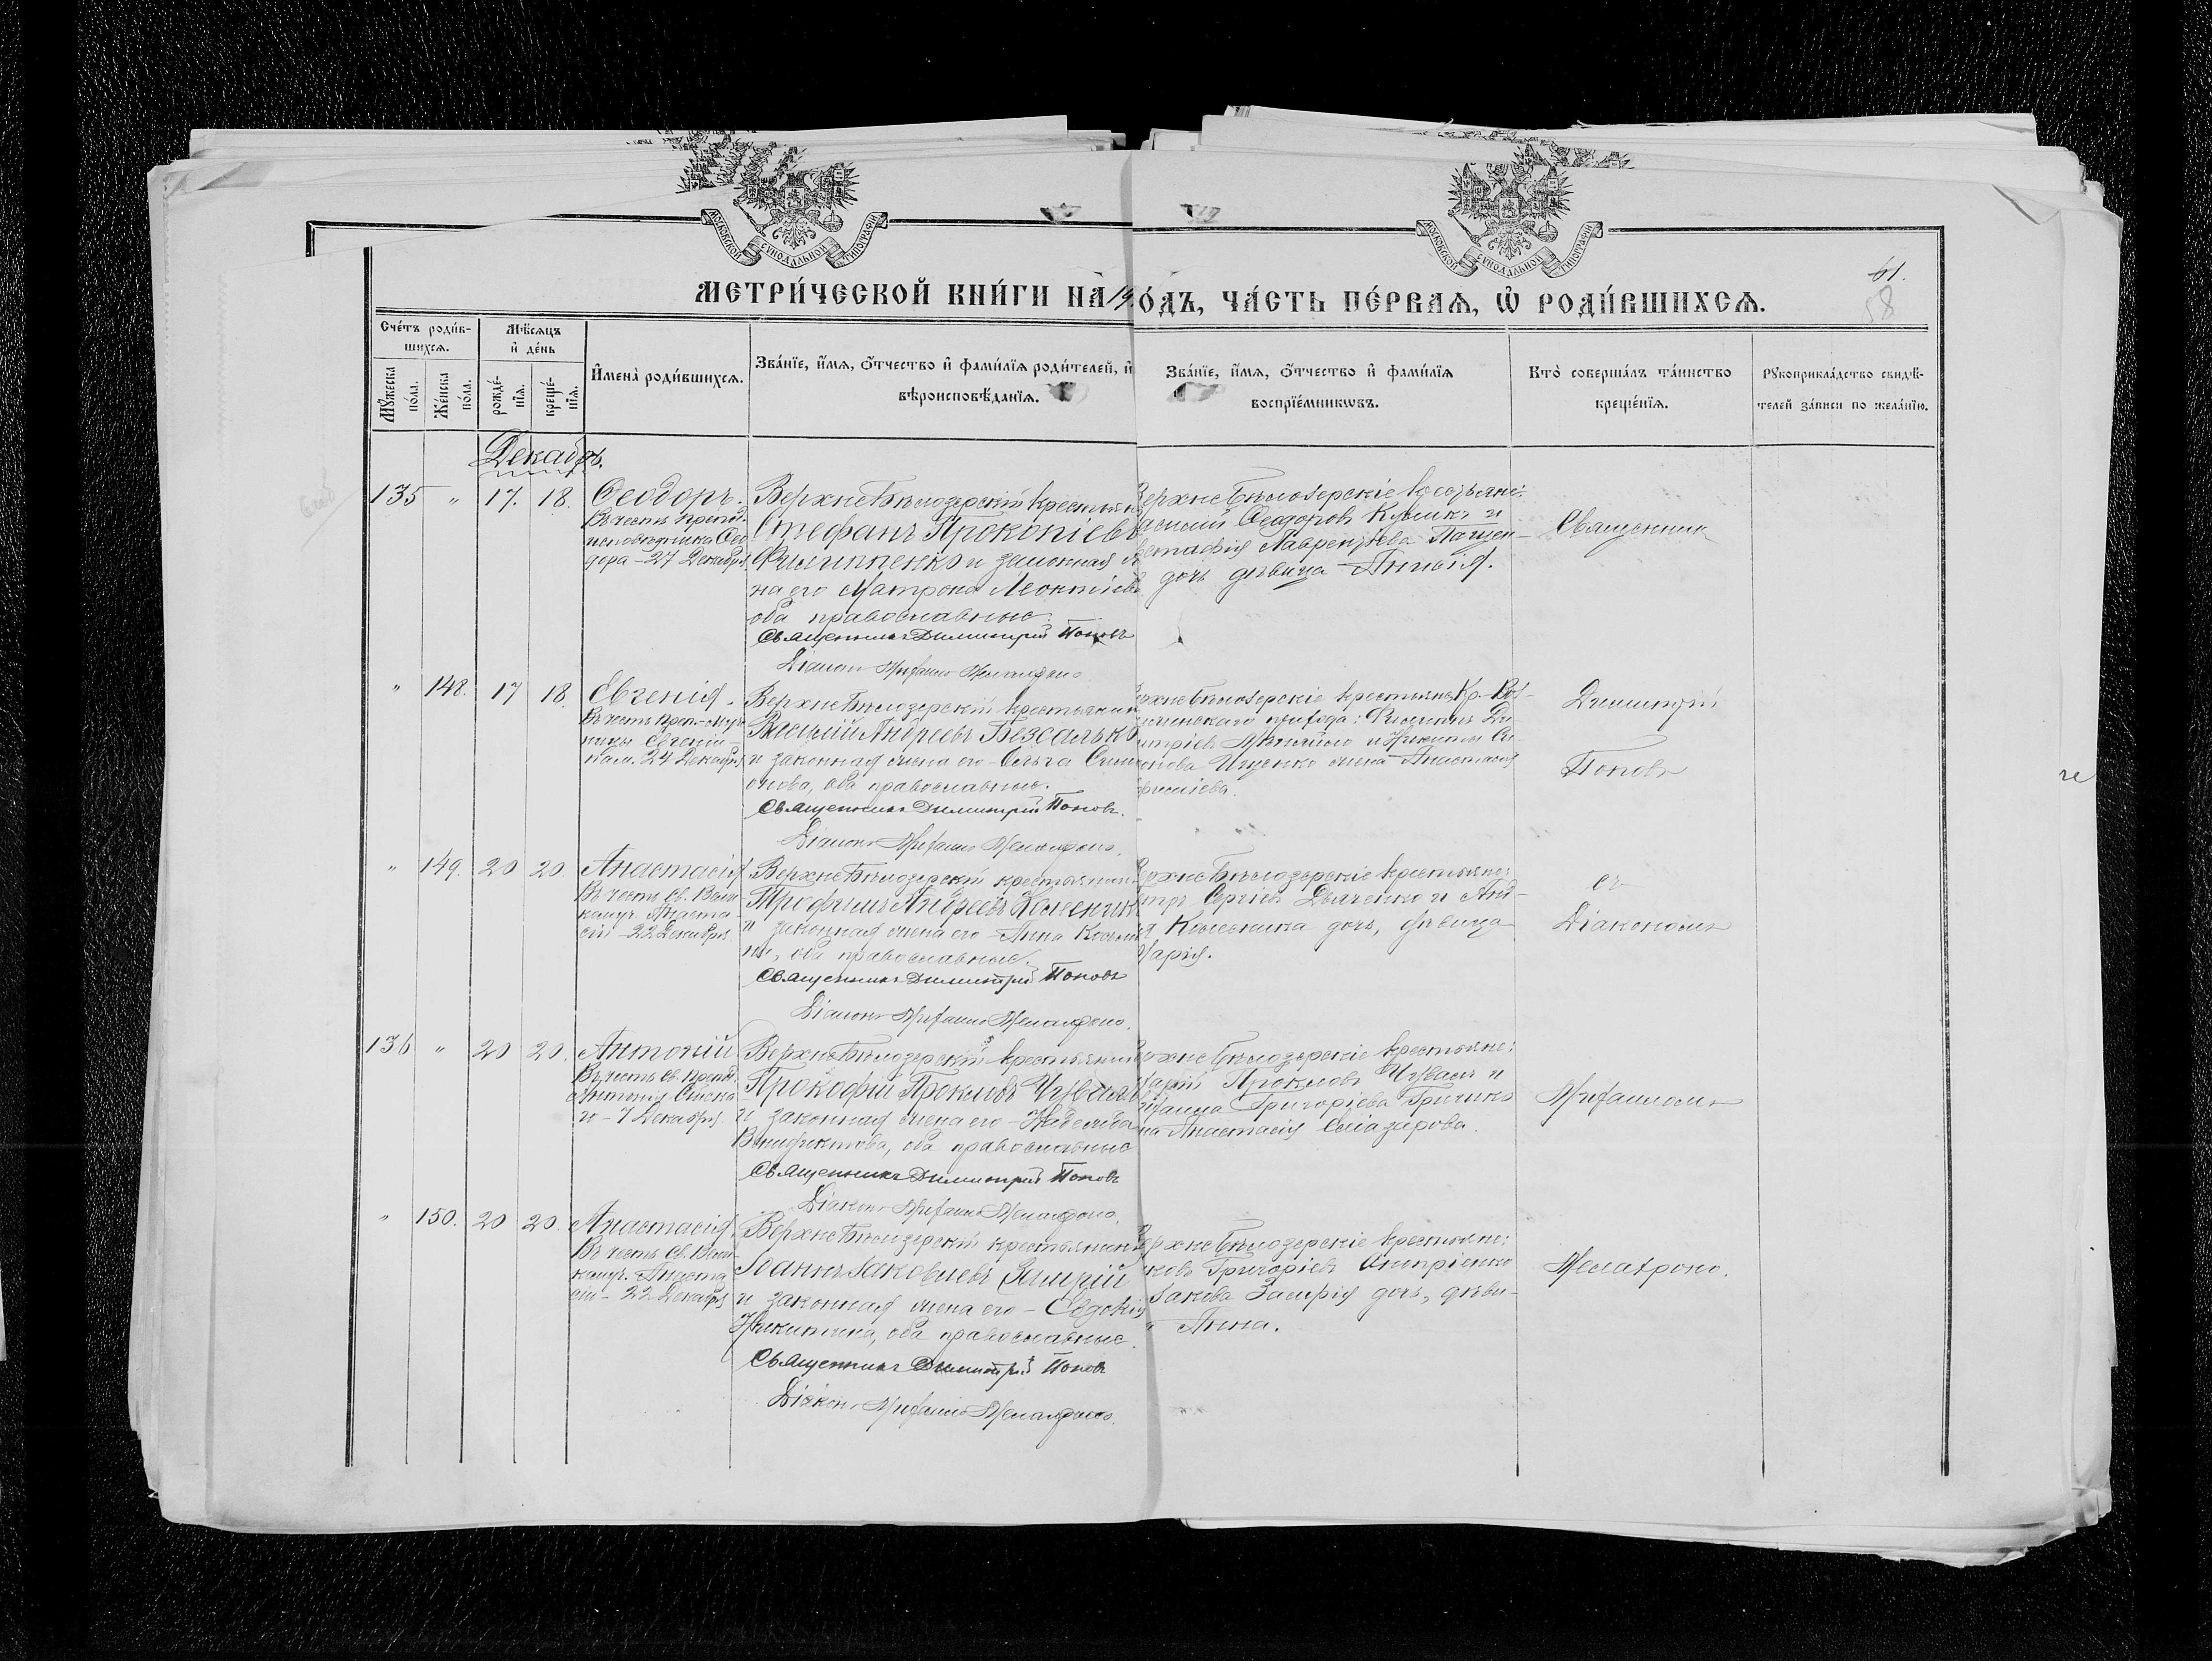 МОСКОВСКОЙ СѴНОДАЛЬНОЙ ТИПОГРАФІИ
МОСКОВСКОЙ СѴНОДАЛЬНОЙ ТИПОГРАФІИ
61.
58
МЕТРИ́ЧЕСКОЙ КНИ́ГИ НА 19
О́ДЪ, ЧА́СТЬ ПЕ́РВАѦ, Ѡ҆ РОДИ́ВШИХСѦ.
Сче́тъ роди́в-
шихсѧ.
Мѣ́сѧцъ
и҆ де́нь
Мꙋ́жеска
по́ла.
Же́нска
по́ла.
рожде́-
нїѧ.
креще́-
нїѧ.
И҆мена̀ роди́вшихсѧ.
Зва́нїе, и҆́мѧ, ѻ҆́тчество и҆ фами́лїѧ роди́телей, и҆
вѣроисповѣ́данїѧ.
Зва́нїе, и҆́мѧ, ѻ҆́тчество и҆ фами́лїѧ
воспрїе́мникѡвъ.
Кто̀ соверша́лъ та́инство
креще́нїѧ.
Рꙋкоприкла́дство свидѣ́-
телей за́писи по жела́нїю.
Декабрь.
135 " 17. 18. Ѳеодоръ.
Въ честь препод.
исповѣдника Ѳео
дора – 27 Декабря
Верхне Бѣлозерскій крестьян
Стефанъ Прокопіевъ
Филиппенко и законная
на его Матрона Леонтіев
оба православные.
Священникъ Димитрій Поповъ
Діаконъ
ерхне Бѣлозерскіе крестьяне:
асилій Ѳеодоровъ Куликъ и
Лаврентьева
дочь дѣвица
Священник
" 148. 17 18. Евгенія.
Въ честь Преп.-муч
ницы Евгеніи
пам. 24 Декабря
Верхне Бѣлозерскій крестьянин
Василій Андреевъ Безсалько
и законная жена его – Ольга Сим
онова, оба православные.
Священникъ Димитрій Поповъ.
Діаконъ
рхне Бѣлозерскіе крестьяне Кр.-Воз-
прихода: Филиппъ Ди-
митріевъ и Никиты Си-
онова Ищенко жена Анастасія
Димитрій
Поповъ
" 149. 20 20. Анастасія
Въ честь Св. Вели
комуч. Анаста
сіи – 22 Декабря
Верхне Бѣлозерскій крестьянин
Трофимъ Андреевъ Колесник
и законная жена его – Анна
на, оба православные.
Священникъ Димитрій Поповъ
Діаконъ
ерхне Бѣлозерскіе крестьяне:
етръ Сергіевъ Дьяченко и Анд-
я Колесника дочь, дѣвица
Марія.
съ
Діакономъ
136 " 20 20. Антоній
Въ честь Св. Препод.
Антонія Сійска
го – 7 Декабря
Верхне Бѣлозерскій крестьянин
Прокофій Прокловъ Чуваш
и законная жена его – Надежда
оба православные
Священникъ Димитрій Поповъ
Діаконъ
ерхне Бѣлозерскіе крестьяне:
Прокловъ и
ихаила Григоріева
на Анастасія Елизарова.
" 150. 20 20 Анастасія
Въ честь Св. Вели-
комуч. Анаста
сіи – 22 Декабря
Верхне Бѣлозерскій крестьянин
Іоаннъ Іаковлевъ Замрій
и законная жена его – Евдокія
Никитина, оба православные.
Священникъ Димитрій Поповъ
Діаконъ
ерхне Бѣлозерскіе крестьяне:
ковъ Григоріевъ Оноприенко
Іакова Замрія дочь, дѣви-
Анна.